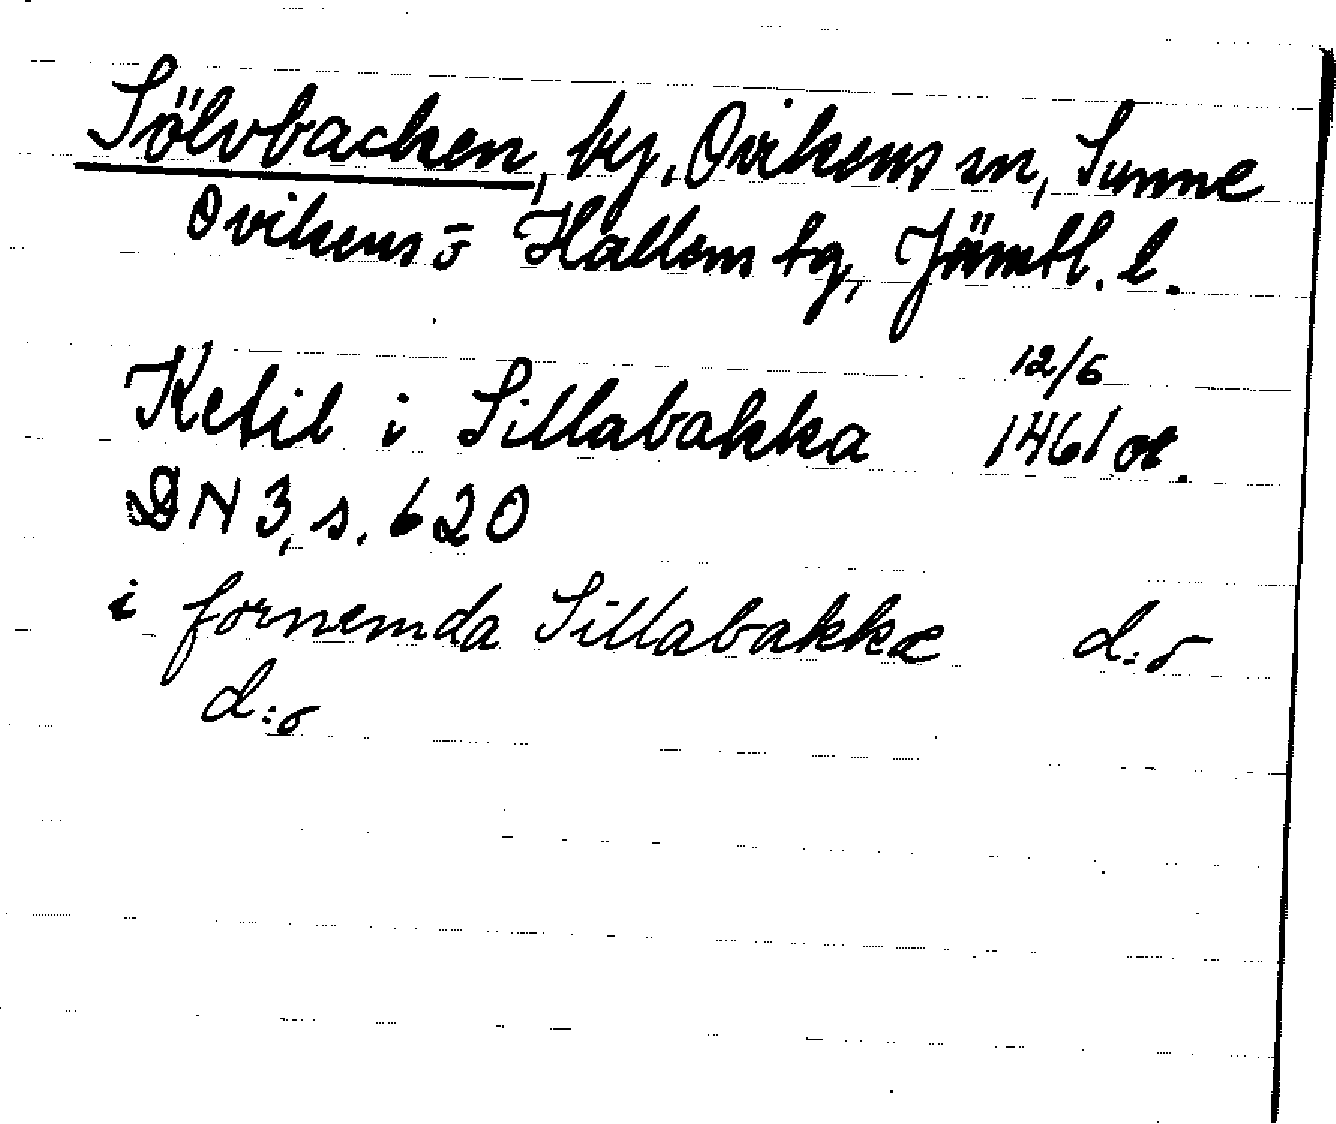 Sölvbacken, by, Ovikens sn, Sunne
Ovikens o Hallens tg, Jämtl. l.
Ketil i Sillabakka 12/6 1461 or.
DN 3, s. 620
i fornemda Sillabakkæ d:o
d:o